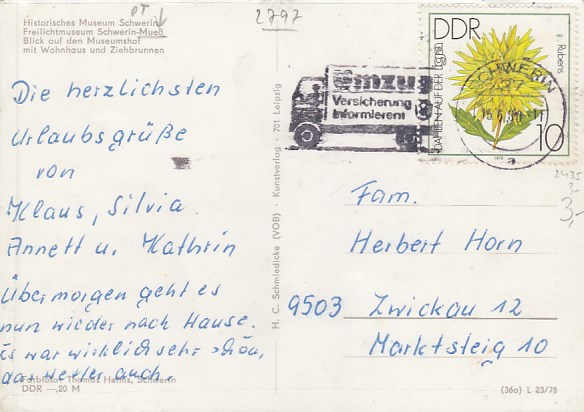 PT
2797
Historisches Museum Schwerin
Freilichtmuseum Schwerin-Mueß
Blick auf den Museumshof
mit Wohnhaus und Ziehbrunnen
Die herzlichsten
Urlaubsgrüße
von
Klaus, Silvia
Annett u. Kathrin
Übermorgen geht es
nun wieder nach Hause.
Es war wirklich sehr schön,
das Wetter auch.
Farbfoto: Thomas Helms, Schwerin
DDR —,20 M
H. C. Schmiedicke (VOB) · Kunstverlag · 701 Leipzig
Umzug
Versicherung
informieren!
DDR
Rubens
DAHLIEN AUF DER
10
1979
SCHWERIN
a
2435
3,
Fam.
Herbert Horn
9503 Zwickau 12
Marktsteig 10
(36a) L 23/78